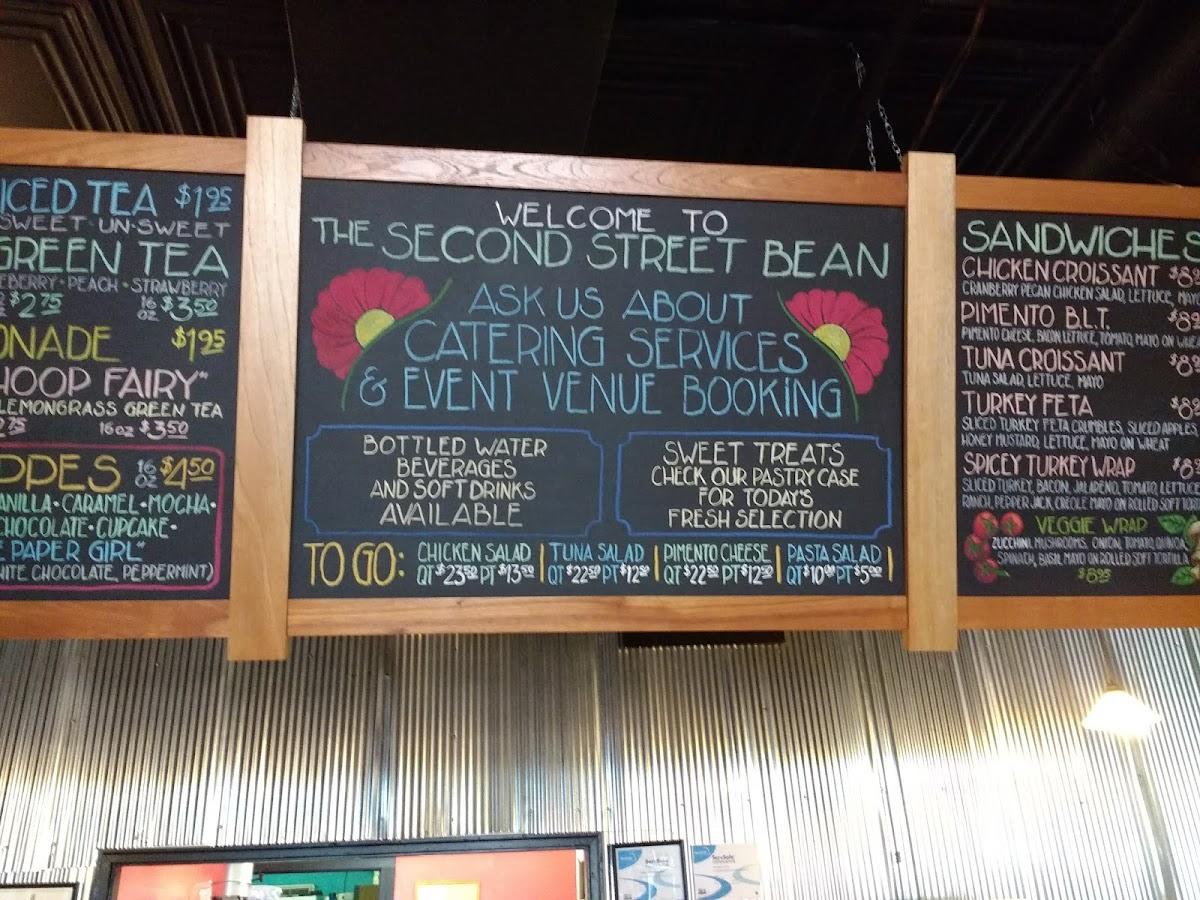 ICED TEA $1.95
SWEET · UN-SWEET
GREEN TEA
EBERRY · PEACH · STRAWBERRY
$2.75 16 OZ $3.50
ONADE $1.95
HOOP FAIRY"
LEMONGRASS GREEN TEA
75 16oz $3.50
PPES 16 OZ $4.50
ANILLA · CARAMEL · MOCHA ·
CHOCOLATE · CUPCAKE ·
E PAPER GIRL"
HITE CHOCOLATE, PEPPERMINT)
WELCOME TO
THE SECOND STREET BEAN
ASK US ABOUT
CATERING SERVICES
& EVENT VENUE BOOKING
BOTTLED WATER
BEVERAGES
AND SOFT DRINKS
AVAILABLE
SWEET TREATS
CHECK OUR PASTRY CASE
FOR TODAY'S
FRESH SELECTION
TO GO: CHICKEN SALAD | TUNA SALAD | PIMENTO CHEESE | PASTA SALAD |
QT $23.50 PT $13.50 | QT $22.50 PT $12.50 | QT $22.50 PT $12.50 | QT $10.00 PT $5.00 |
SANDWICHES
CHICKEN CROISSANT $8
CRANBERRY PECAN CHICKEN SALAD, LETTUCE, MAYO
PIMENTO B.L.T. $8
PIMENTO CHEESE, BACON, LETTUCE, TOMATO, MAYO ON WHEA
TUNA CROISSANT $8
TUNA SALAD, LETTUCE, MAYO
TURKEY FETA $8
SLICED TURKEY, FETA CRUMBLES, SLICED APPLES,
HONEY MUSTARD, LETTUCE, MAYO ON WHEAT
SPICEY TURKEY WRAP $8
SLICED TURKEY, BACON, JALAPENO, TOMATO, LETTUCE
RANCH, PEPPER JACK, CREOLE MAYO ON ROLLED SOFT TO
VEGGIE WRAP
ZUCCHINI, MUSHROOMS, ONION, TOMATO, QUINOA,
SPINACH, BASIL MAYO ON ROLLED SOFT TORTILLA
$8.95
ServSafe
ServSafe